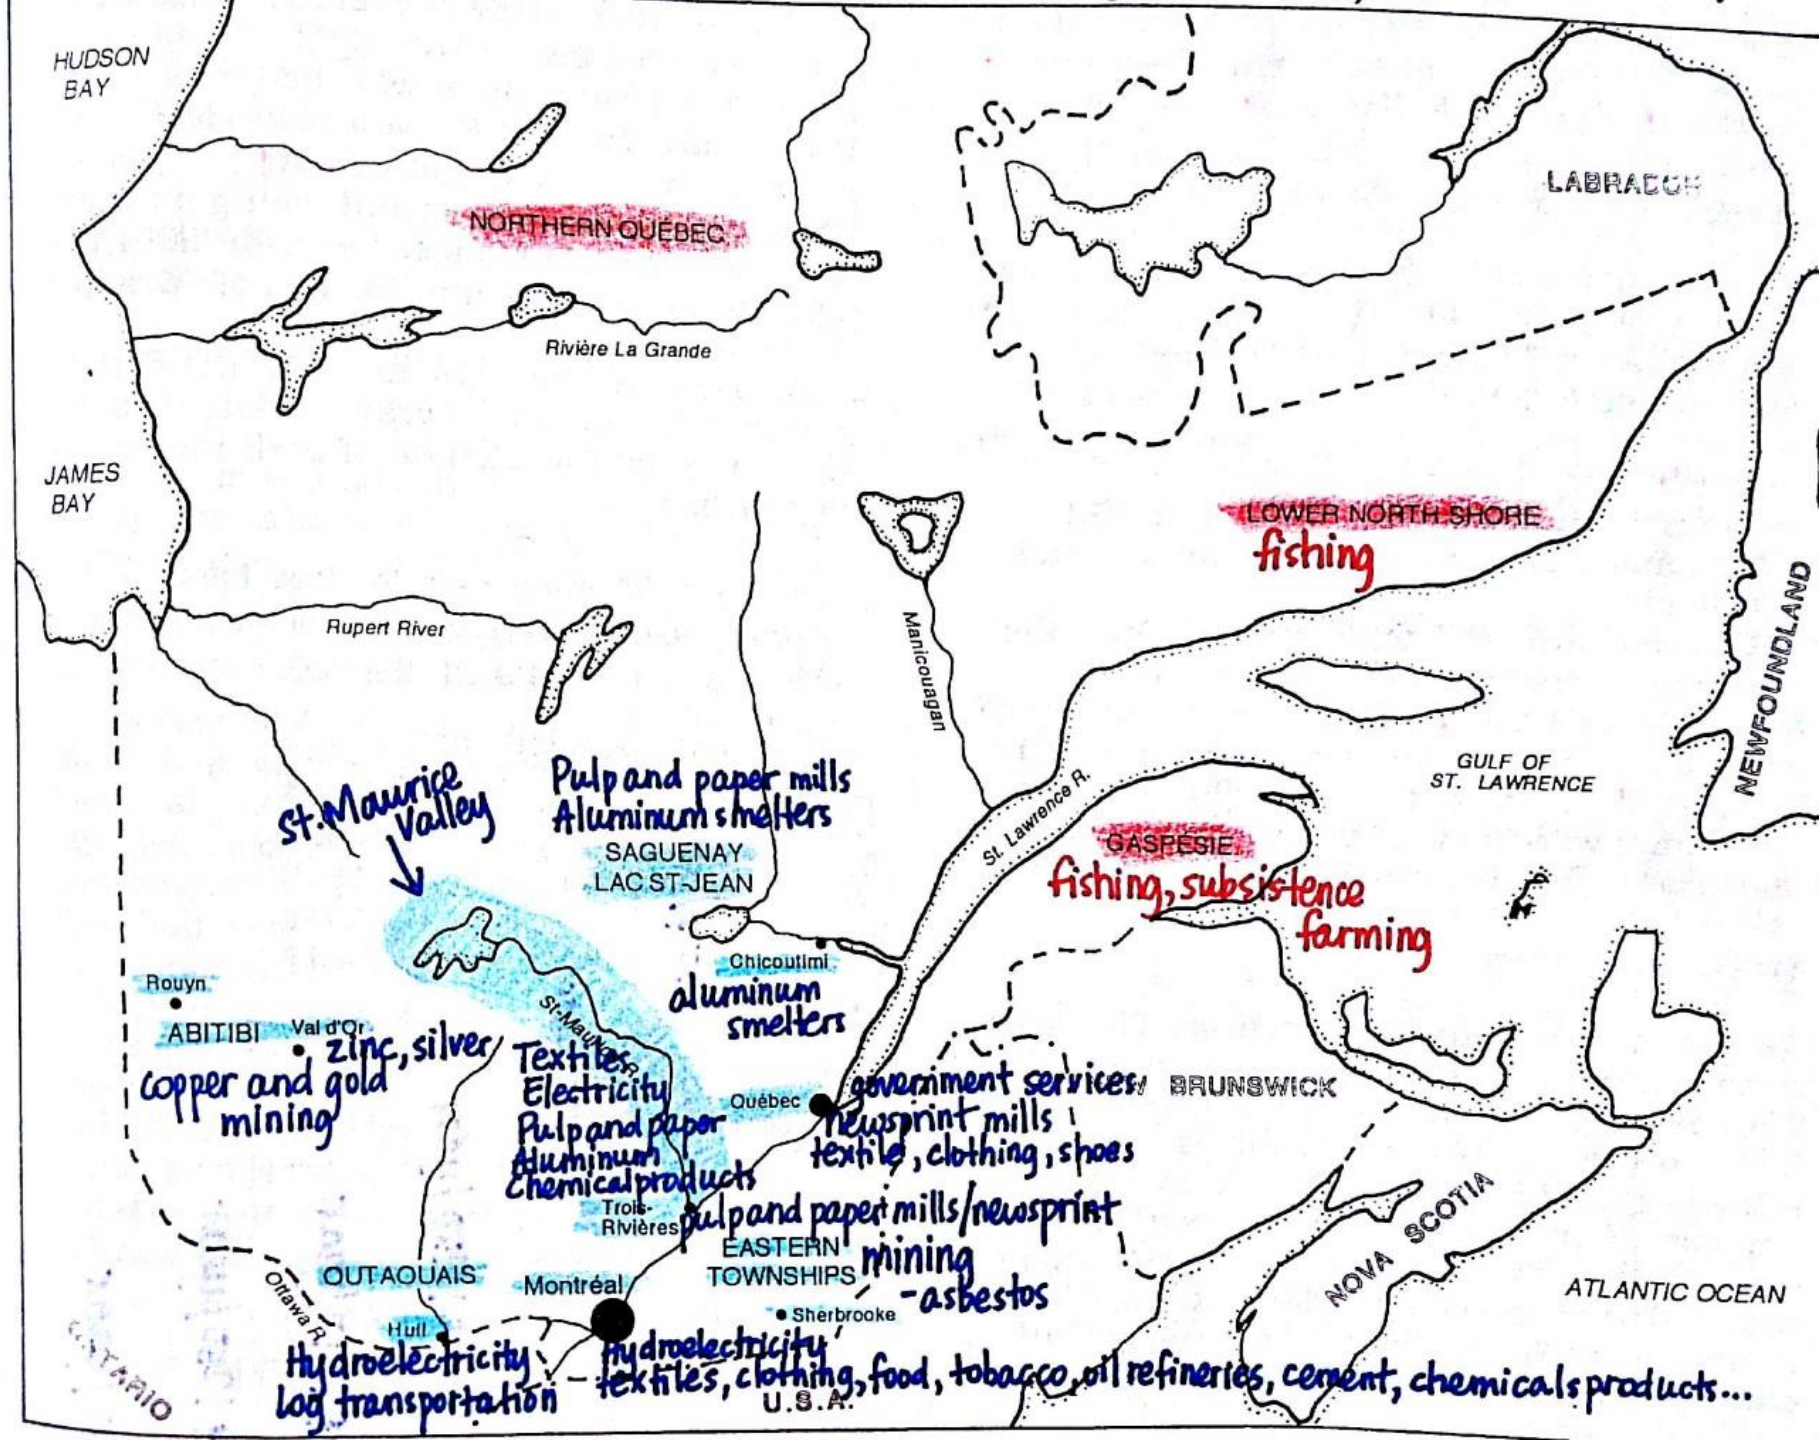 HUDSON
BAY
LABRADOR
NORTHERN QUÉBEC
Rivière La Grande
JAMES
BAY
LOWER NORTH SHORE
fishing
Rupert River
Manicouagan
NEWFOUNDLAND
GULF OF
ST. LAWRENCE
St. Maurice
Valley
Pulp and paper mills
Aluminum smelters
SAGUENAY
LAC ST-JEAN
St. Lawrence R.
GASPÉSIE
fishing, subsistence
farming
Chicoutimi
aluminum
smelters
Rouyn
ABITIBI
Val d'Or
zinc, silver
copper and gold
mining
St-Maurice R.
Textiles
Electricity
Pulp and paper
Aluminum
Chemical products
Québec
government services
newsprint mills
textile, clothing, shoes
W BRUNSWICK
Trois-
Rivières
pulp and paper mills/newsprint
EASTERN
TOWNSHIPS
mining
-asbestos
NOVA SCOTIA
ATLANTIC OCEAN
OUTAOUAIS
Montréal
Sherbrooke
Ottawa R.
Hull
Hydroelectricity
log transportation
Hydroelectricity
textiles, clothing, food, tobacco, oil refineries, cement, chemicals products...
U.S.A.
ONTARIO